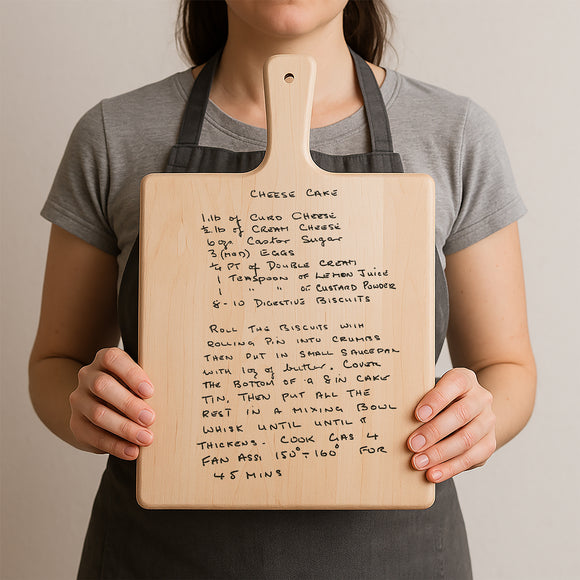 CHEESE CAKE
1.lb of CURD CHEESE
½ lb of CREAM CHEESE
6 ozs Castor Sugar
3 (MED) EGGS
¼ PT OF DOUBLE CREAM
1 TEASPOON OF LEMON JUICE
1 " " OF CUSTARD POWDER
8-10 DIGESTIVE BISCUITS
ROLL THE BISCUITS WITH
ROLLING PIN INTO CRUMBS
THEN PUT IN SMALL SAUCEPAN
WITH 1oz of butter. COVER
THE BOTTOM OF A 8 IN CAKE
TIN. THEN PUT ALL THE
REST IN A MIXING BOWL
WHISK UNTIL UNTIL IT
THICKENS. COOK GAS 4
FAN ASSI 150°-160° FOR
45 MINS